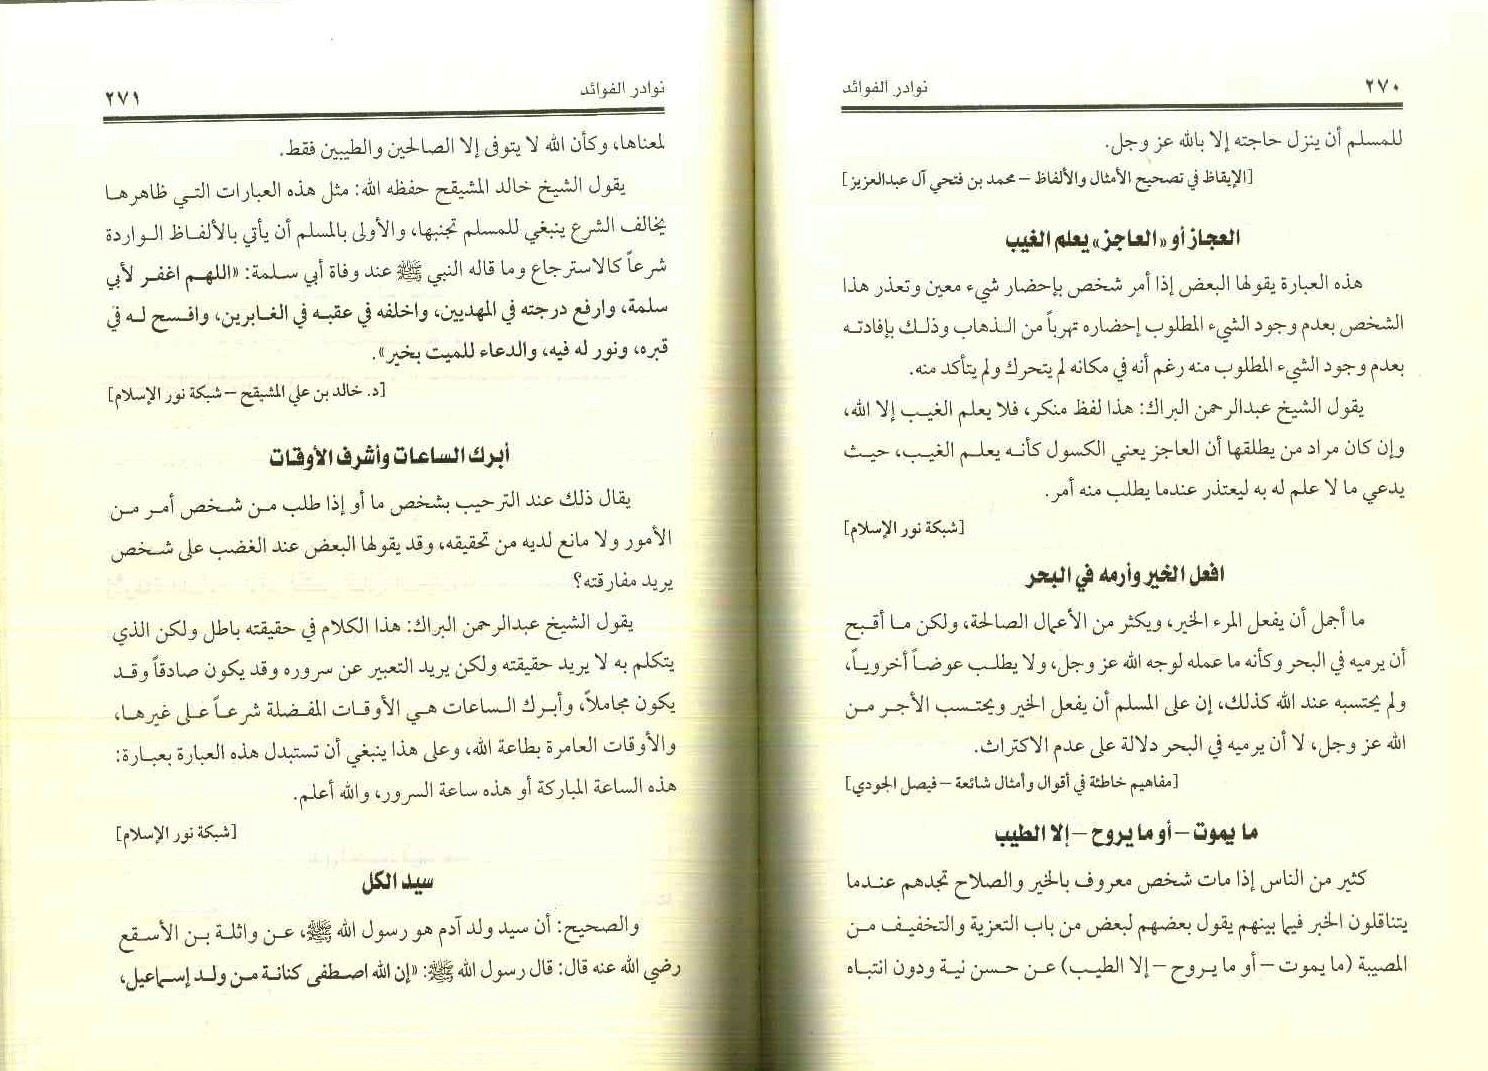 ٢٧٠ نوادر الفوائد
للمسلم أن ينزل حاجته إلا بالله عز وجل.
[الإيقاظ في تصحيح الأمثال والألفاظ – محمد بن فتحي آل عبدالعزيز]
العجاز أو «العاجز» يعلم الغيب
هذه العبارة يقولها البعض إذا أمر شخص بإحضار شيء معين وتعذر هذا
الشخص بعدم وجود الشيء المطلوب إحضاره تهرباً من الذهاب وذلك بإفادته
بعدم وجود الشيء المطلوب منه رغم أنه في مكانه لم يتحرك ولم يتأكد منه.
يقول الشيخ عبدالرحمن البراك: هذا لفظ منكر، فلا يعلم الغيب إلا الله،
وإن كان مراد من يطلقها أن العاجز يعني الكسول كأنه يعلم الغيب، حيث
يدعي ما لا علم له به ليعتذر عندما يطلب منه أمر.
[شبكة نور الإسلام]
افعل الخير وأرمه في البحر
ما أجمل أن يفعل المرء الخير، ويكثر من الأعمال الصالحة، ولكن ما أقبح
أن يرميه في البحر وكأنه ما عمله لوجه الله عز وجل، ولا يطلب عوضاً أخروياً،
ولم يحتسبه عند الله كذلك، إن على المسلم أن يفعل الخير ويحتسب الأجر من
الله عز وجل، لا أن يرميه في البحر دلالة على عدم الاكتراث.
[مفاهيم خاطئة في أقوال وأمثال شائعة – فيصل الجودي]
ما يموت – أو ما يروح – إلا الطيب
كثير من الناس إذا مات شخص معروف بالخير والصلاح تجدهم عندما
يتناقلون الخبر فيما بينهم يقول بعضهم لبعض من باب التعزية والتخفيف من
المصيبة (ما يموت – أو ما يروح – إلا الطيب) عن حسن نية ودون انتباه
نوادر الفوائد ٢٧١
لمعناها، وكأن الله لا يتوفى إلا الصالحين والطيبين فقط.
يقول الشيخ خالد المشيقح حفظه الله: مثل هذه العبارات التي ظاهرها
يخالف الشرع ينبغي للمسلم تجنبها، والأولى بالمسلم أن يأتي بالألفاظ الواردة
شرعاً كالاسترجاع وما قاله النبي ﷺ عند وفاة أبي سلمة: «اللهم اغفر لأبي
سلمة، وارفع درجته في المهديين، واخلفه في عقبه في الغابرين، وافسح له في
قبره، ونور له فيه، والدعاء للميت بخير».
[د. خالد بن علي المشيقح – شبكة نور الإسلام]
أبرك الساعات وأشرف الأوقات
يقال ذلك عند الترحيب بشخص ما أو إذا طلب من شخص أمر من
الأمور ولا مانع لديه من تحقيقه، وقد يقولها البعض عند الغضب على شخص
يريد مفارقته؟
يقول الشيخ عبدالرحمن البراك: هذا الكلام في حقيقته باطل ولكن الذي
يتكلم به لا يريد حقيقته ولكن يريد التعبير عن سروره وقد يكون صادقاً وقد
يكون مجاملاً، وأبرك الساعات هي الأوقات المفضلة شرعاً على غيرها،
والأوقات العامرة بطاعة الله، وعلى هذا ينبغي أن تستبدل هذه العبارة بعبارة:
هذه الساعة المباركة أو هذه ساعة السرور، والله أعلم.
[شبكة نور الإسلام]
سيد الكل
والصحيح: أن سيد ولد آدم هو رسول الله ﷺ، عن واثلة بن الأسقع
رضي الله عنه قال: قال رسول الله ﷺ: «إن الله اصطفى كنانة من ولد إسماعيل،